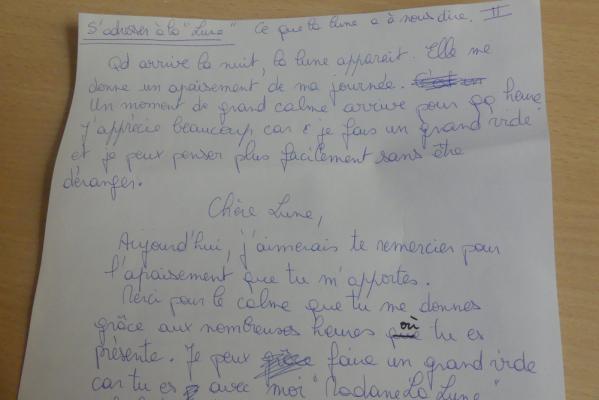 S'adresser à la "Lune" Ce que la lune a à nous dire. II
Qd arrive la nuit, la lune apparait. Elle me
donne un apaisement de ma journée.
Un moment de grand calme arrive pour qq heure
J'apprécie beaucoup car je fais un grand vide
et je peux penser plus facilement sans être
déranger.
Chère Lune,
Aujourd'hui, j'aimerais te remercier pour
l'apaisement que tu m'apportes.
Merci pour le calme que tu me donnes
grâce aux nombreuses heures où tu es
présente. Je peux faire un grand vide
car tu es avec moi "Madame La Lune"